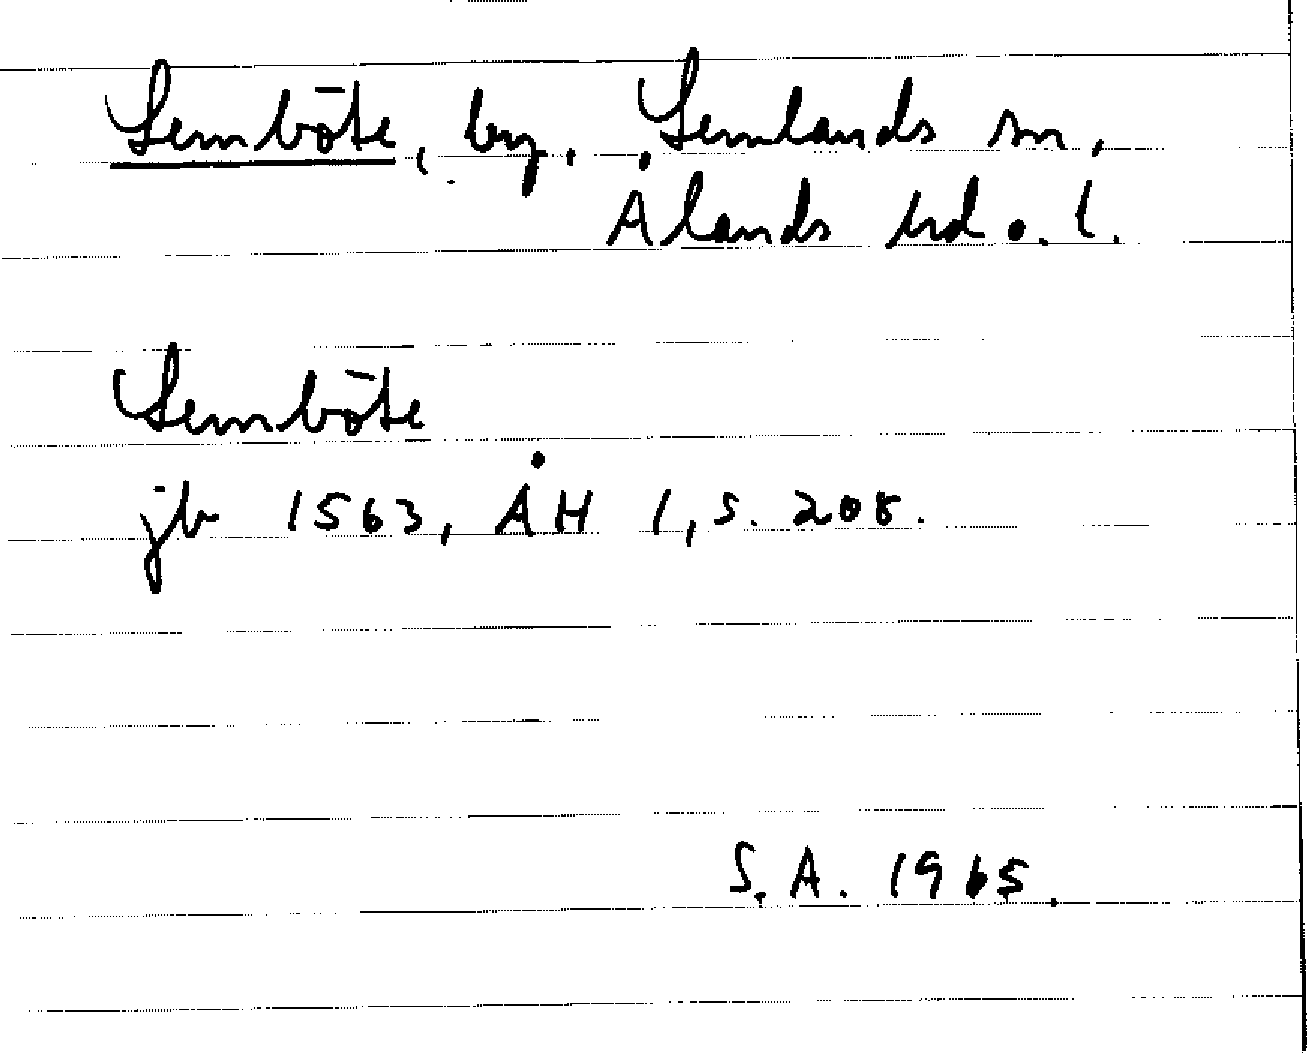 Lemböte, by, Lemlands sn,
Ålands hd o. l.
Lemböte
jb 1563, ÅH 1, s. 208.
S.A. 1965.